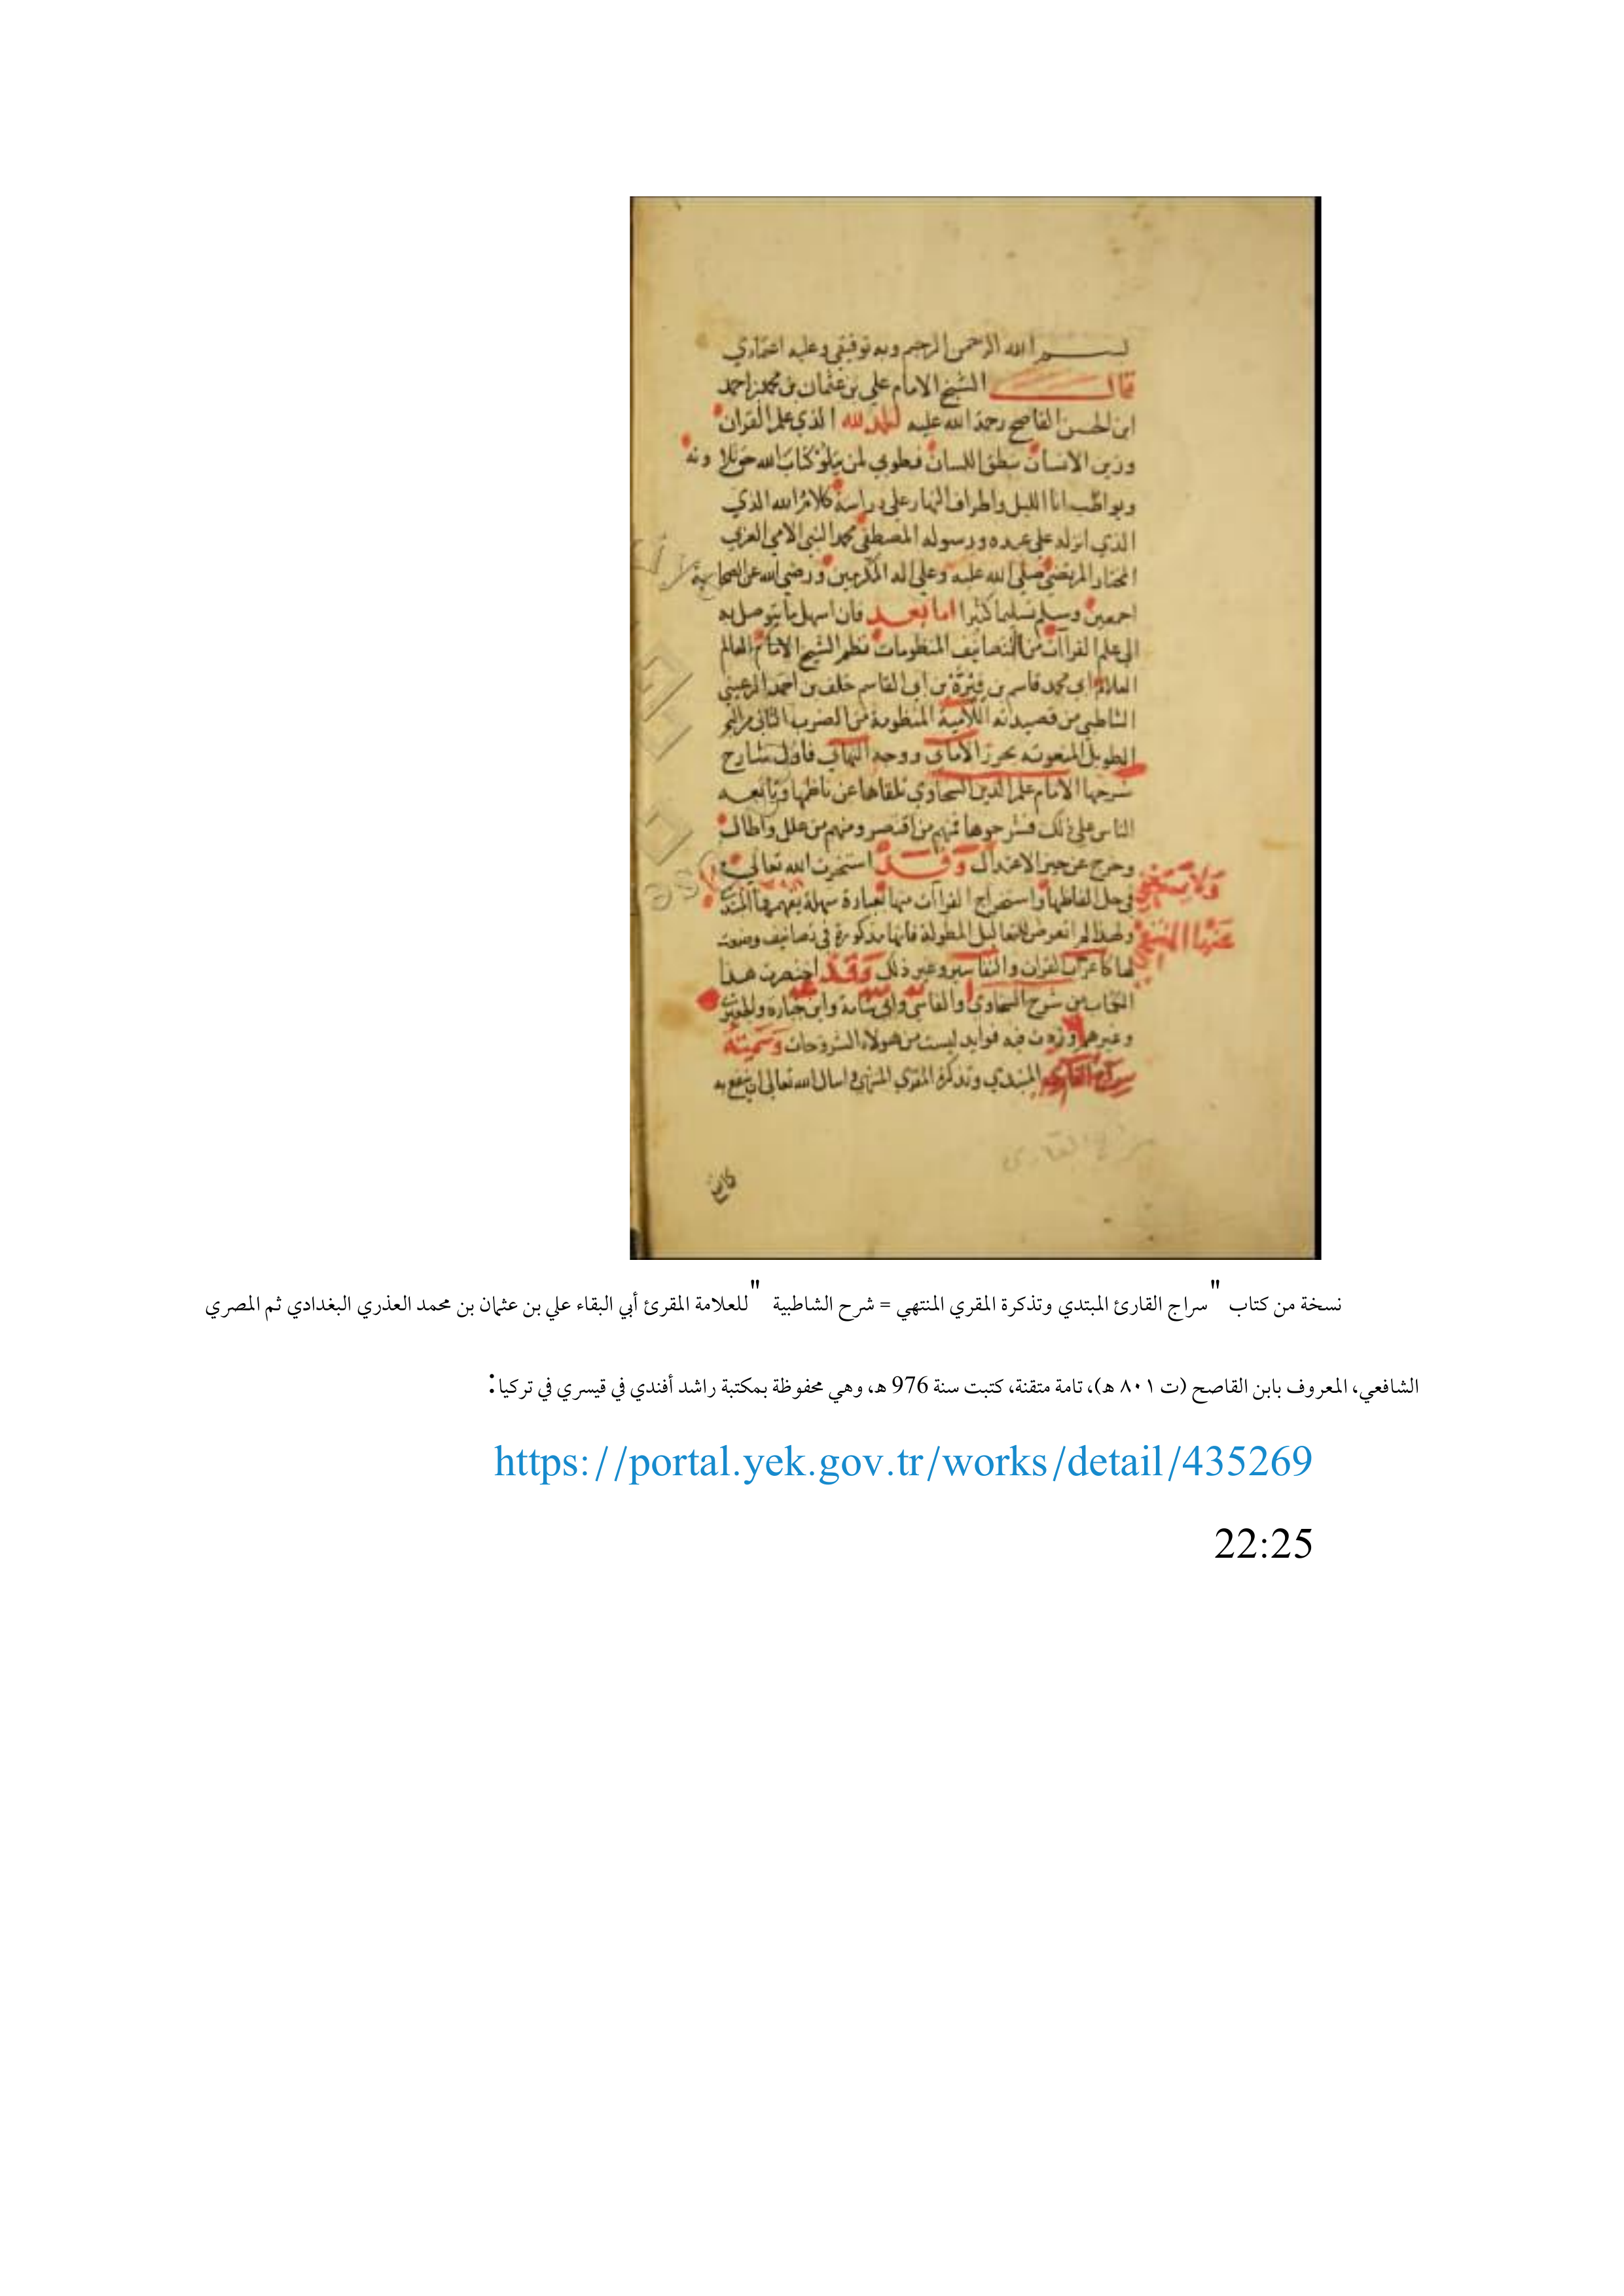 بسم الله الرحمن الرحيم وبه توفيقي وعليه اعتمادي
قال الشيخ الامام علي بن عثمان بن محمد بن احمد
ابن الحسن القاصح رحمة الله عليه الحمد لله الذي علم القران
وزين الانسان بنطق اللسان فطوبي لمن يتلو كتاب الله حق تلاوته
ويواظب انا الليل واطراف النهار علي دراسة كلام الله الذي
الذي انزله علي عبده ورسوله المصطفي محمد النبي الامي العربي
المختار المرتضي صلي الله عليه وعلي اله المكرمين ورضي الله عن الصحابة
اجمعين وسلم تسليما كثيرا اما بعد فان اسهل ما يتوصل به
الي علم القراآت من التصانيف المنظومات نظم الشيخ الامام العالم
العلامة ابي محمد قاسم بن فيرة بن ابي القاسم خلف بن احمد الرعيني
الشاطبي من قصيدته اللامية المنظومة من الضرب الثاني من البحر
الطويل المنعوته بحرز الاماني ووجه التهاني فاول شارح
شرحها الامام علم الدين السخاوي تلقاها عن ناظمها وتابعه
الناس علي ذلك فشرحوها فمنهم من اقتصر ومنهم من علل واطال
وخرج عن حيز الاعتدال وقد استخرت الله تعالي
في حل الفاظها واستخراج القراآت منها بعبارة سهلة يفهمها المبتدي
ولا يستغني
عنها المنتهي
ولهذا لم اتعرض للتعاليل المطولة فانها مذكورة في تصانيف وضعت
لها كاعراب القران والتفاسير وغير ذلك وقد اختصرت هذا
الكتاب من شرح السخاوي والفاسي وابي شامة وابن جبارة والجعبري
وغيرهم وزدت فيه فوايد ليست من هولاء الشروحات وسميته
سراج القاري المبتدي وتذكرة المقري المنتهي واسال الله تعالي ان ينفع به
سراج القاري
نسخة من كتاب "سراج القارئ المبتدي وتذكرة المقري المنتهي = شرح الشاطبية "للعلامة المقرئ أبي البقاء علي بن عثمان بن محمد العذري البغدادي ثم المصري
الشافعي، المعروف بابن القاصح (ت ٨٠١ هـ)، تامة متقنة، كتبت سنة 976 هـ، وهي محفوظة بمكتبة راشد أفندي في قيسري في تركيا:
https://portal.yek.gov.tr/works/detail/435269
22:25